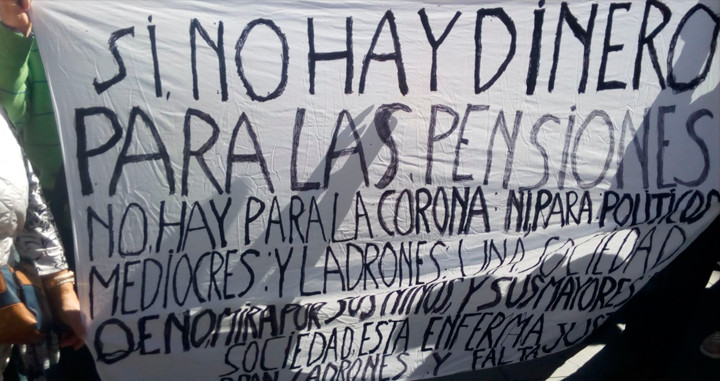 SI, NO HAY DINERO
PARA LAS, PENSIONES
NO, HAY PARA LA CORONA. NI, PARA POLITICOS
MEDIOCRES: Y LADRONES: UNA SOCIEDAD
QENO, MIRA POR SUS NIÑOS, Y SUS MAYORES
SOCIEDAD, ESTA ENFERMA, JUST
LADRONES Y FALTA